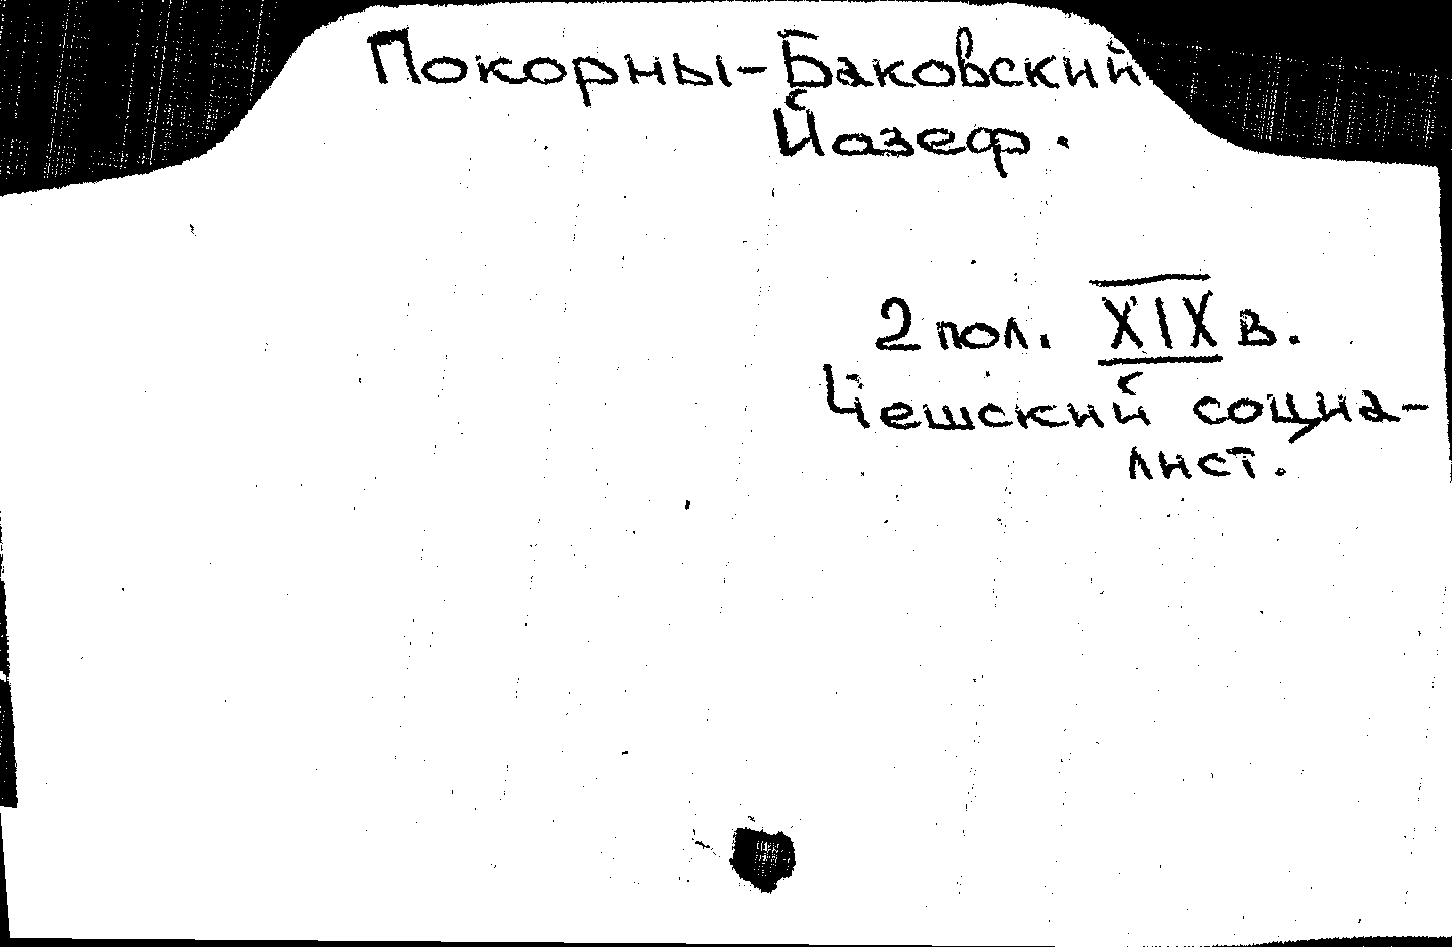 Покорны-Баковский
Йозеф.
2 пол. XIX в.
Чешский социа-
лист.